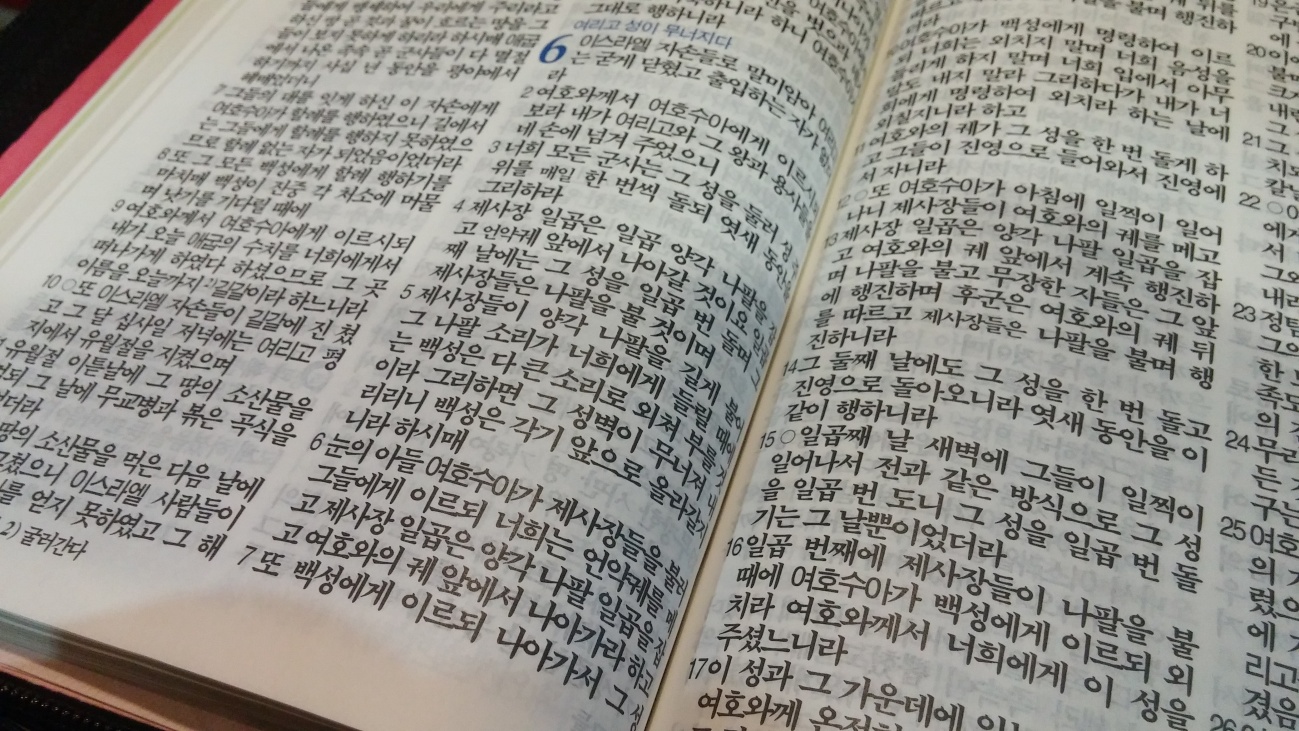 하기까지 사십 년 동안을 광야에서
헤매었더니
7 그들의 대를 잇게 하신 이 자손에게
여호수아가 할례를 행하였으니 길에서
는 그들에게 할례를 행하지 못하였으
므로 할례 없는 자가 되었음이었더라
8 또 그 모든 백성에게 할례 행하기를
마치매 백성이 진중 각 처소에 머물
며 낫기를 기다릴 때에
9 여호와께서 여호수아에게 이르시되
내가 오늘 애굽의 수치를 너희에게서
떠나가게 하였다 하셨으므로 그 곳
이름을 오늘까지 2)길갈이라 하느니라
10 ○또 이스라엘 자손들이 길갈에 진 쳤
고 그 달 십사일 저녁에는 여리고 평
지에서 유월절을 지켰으며
유월절 이튿날에 그 땅의 소산물을
되 그 날에 무교병과 볶은 곡식을
더라
땅의 소산물을 먹은 다음 날에
쳤으니 이스라엘 사람들이
를 얻지 못하였고 그 해
2) 굴러간다
그대로 행하니라
여리고 성이 무너지다
6 이스라엘 자손들로 말미암아
는 굳게 닫혔고 출입하는 자가
라
2 여호와께서 여호수아에게 이르시
보라 내가 여리고와 그 왕과 용사들을
네 손에 넘겨 주었으니
3 너희 모든 군사는 그 성을 둘러 성
위를 매일 한 번씩 돌되 엿새 동안을
그리하라
4 제사장 일곱은 일곱 양각 나팔을
고 언약궤 앞에서 나아갈 것이요 일곱
째 날에는 그 성을 일곱 번 돌며 그
제사장들은 나팔을 불 것이며
5 제사장들이 양각 나팔을 길게 불어
그 나팔 소리가 너희에게 들릴 때에
는 백성은 다 큰 소리로 외쳐 부를 것
이라 그리하면 그 성벽이 무너져 내
리리니 백성은 각기 앞으로 올라갈지
니라 하시매
6 눈의 아들 여호수아가 제사장들을 불러
그들에게 이르되 너희는 언약궤를 메
고 제사장 일곱은 양각 나팔 일곱을 잡
고 여호와의 궤 앞에서 나아가라 하고
7 또 백성에게 이르되 나아가서 그 성
여호수아가 백성에게 명령하여 이르
되 너희는 외치지 말며 너희 음성을
들리게 하지 말며 너희 입에서 아무
말도 내지 말라 그리하다가 내가 너
희에게 명령하여 외치라 하는 날에
외칠지니라 하고
여호와의 궤가 그 성을 한 번 돌게 하
고 그들이 진영으로 들어와서 진영에
서 자니라
○또 여호수아가 아침에 일찍이 일어
나니 제사장들이 여호와의 궤를 메고
13 제사장 일곱은 양각 나팔 일곱을 잡
고 여호와의 궤 앞에서 계속 행진하
며 나팔을 불고 무장한 자들은 그 앞
에 행진하며 후군은 여호와의 궤 뒤
를 따르고 제사장들은 나팔을 불며 행
진하니라
14 그 둘째 날에도 그 성을 한 번 돌고
진영으로 돌아오니라 엿새 동안을 이
같이 행하니라
15 ○일곱째 날 새벽에 그들이 일찍이
일어나서 전과 같은 방식으로 그 성
을 일곱 번 도니 그 성을 일곱 번 돌
기는 그 날뿐이었더라
16 일곱 번째에 제사장들이 나팔을 불
때에 여호수아가 백성에게 이르되 외
치라 여호와께서 너희에게 이 성을
주셨느니라
17 이 성과 그 가운데에
여호와께 온전히
20
21
22 ○
23
한
24 무리
든
구는
25 여호
의
에
26